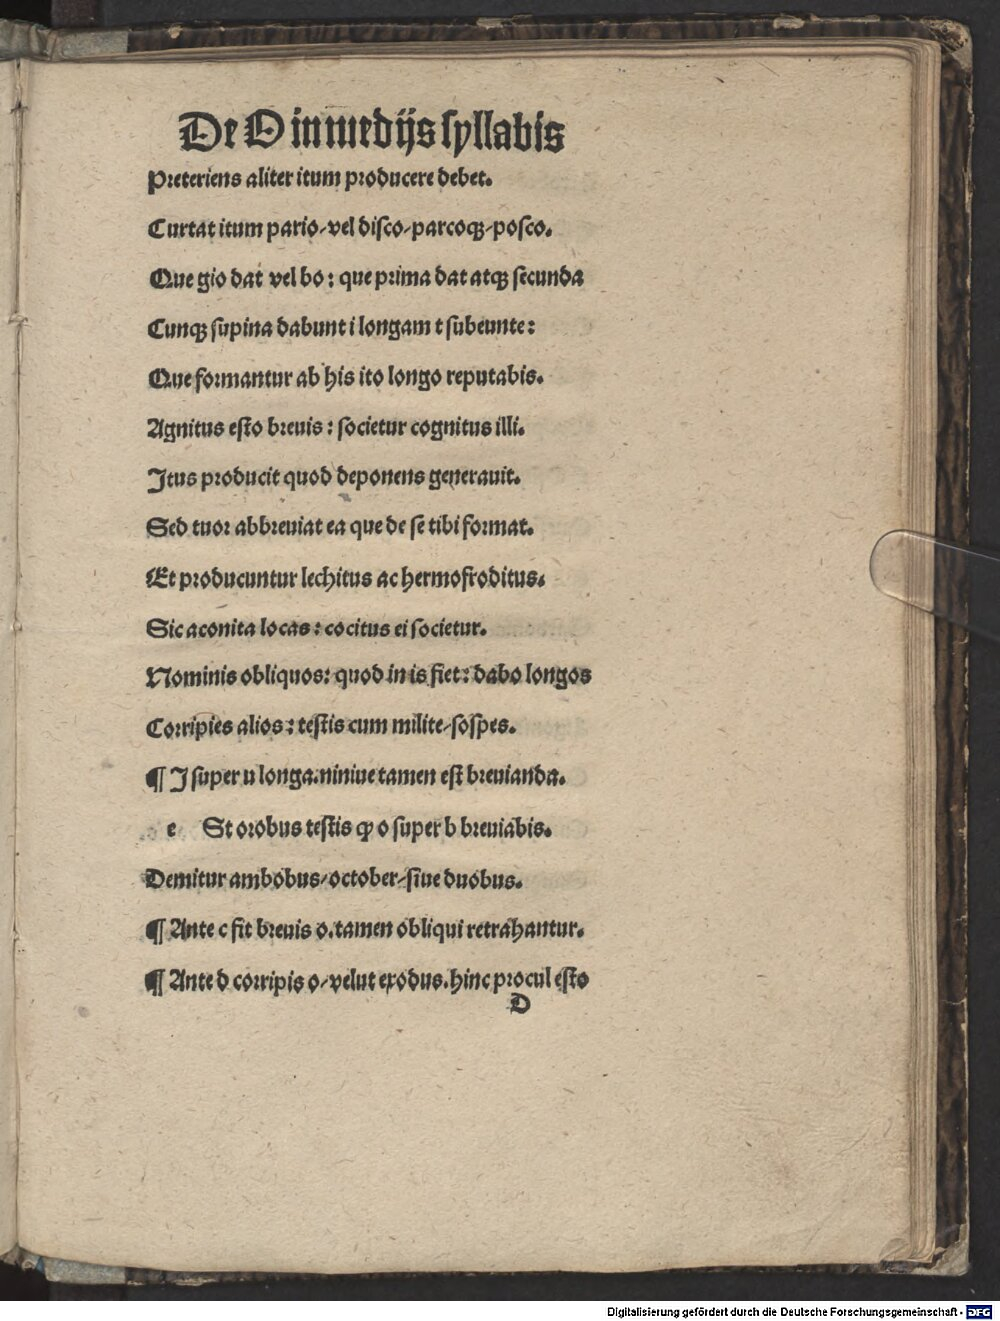 De O in medijs syllabis
Preteriens aliter itum producere debet.
Curtat itum pario/vel disco/parcoqꝫ/posco.
Que gio dat vel bo: que prima dat atqꝫ secunda
Cunqꝫ supina dabunt i longam t subeunte:
Que formantur ab his ito longo reputabis.
Agnitus esto breuis: societur cognitus illi.
Itus producit quod deponens generauit.
Sed tuor abbreuiat ea que de se tibi format.
Et producuntur lechitus ac hermofroditus.
Sic aconita locas: cocitus ei societur.
Nominis obliquos: quod in is fiet: dabo longos
Corripies alios: testis cum milite/sospes.
¶ I super u longa.niniue tamen est breuianda.
e St orobus testis ꝙ o super b breuiabis.
Demitur ambobus/october/siue duobus.
¶ Ante c fit breuis o.tamen obliqui retrahantur.
¶ Ante d corripis o/velut exodus.hinc procul esto
D
Digitalisierung gefördert durch die Deutsche Forschungsgemeinschaft - DFG